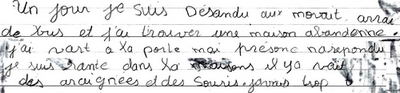 Un jour je suis Désandu aux movait. arrai
de bus et j'ai trouver une maison abandenne.
j'ai vart a la porte mai présone narepondu
je suis rante dans la maisons il ya vait
des araignées et des Souris. javais trop